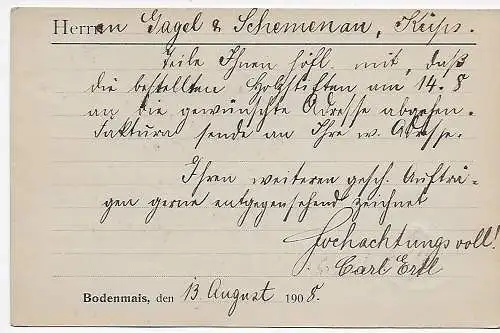 Herren Gagel & Schemenau, Küps.
teile Ihnen höfl. mit, daß
die bestellten Holzstiften am 14. 8
an die gewünschte Adresse abgehen.
Faktura sende an Ihre w. Adresse.
Ihren weiteren gesch. Aufträ-
gen gerne entgegensehend zeichnet
Hochachtungsvoll!
Carl Ertl
Bodenmais, den 13. August 1908.